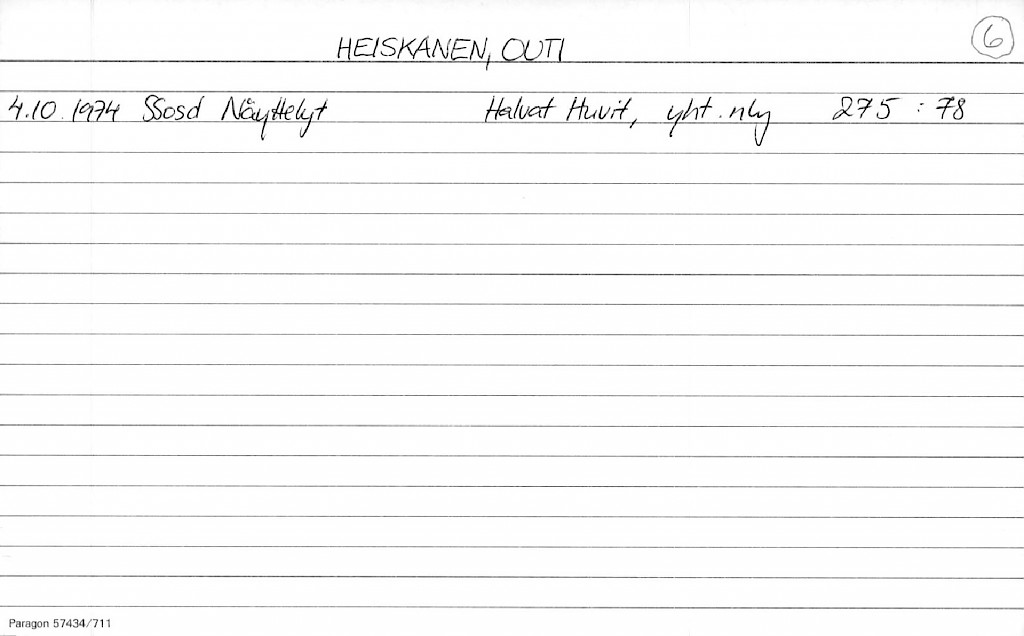 HEISKANEN, OUTI
6
4.10.1974 SSosd Näyttelyt Halvat Huvit, yht. nly 275 : 78
Paragon 57434/711